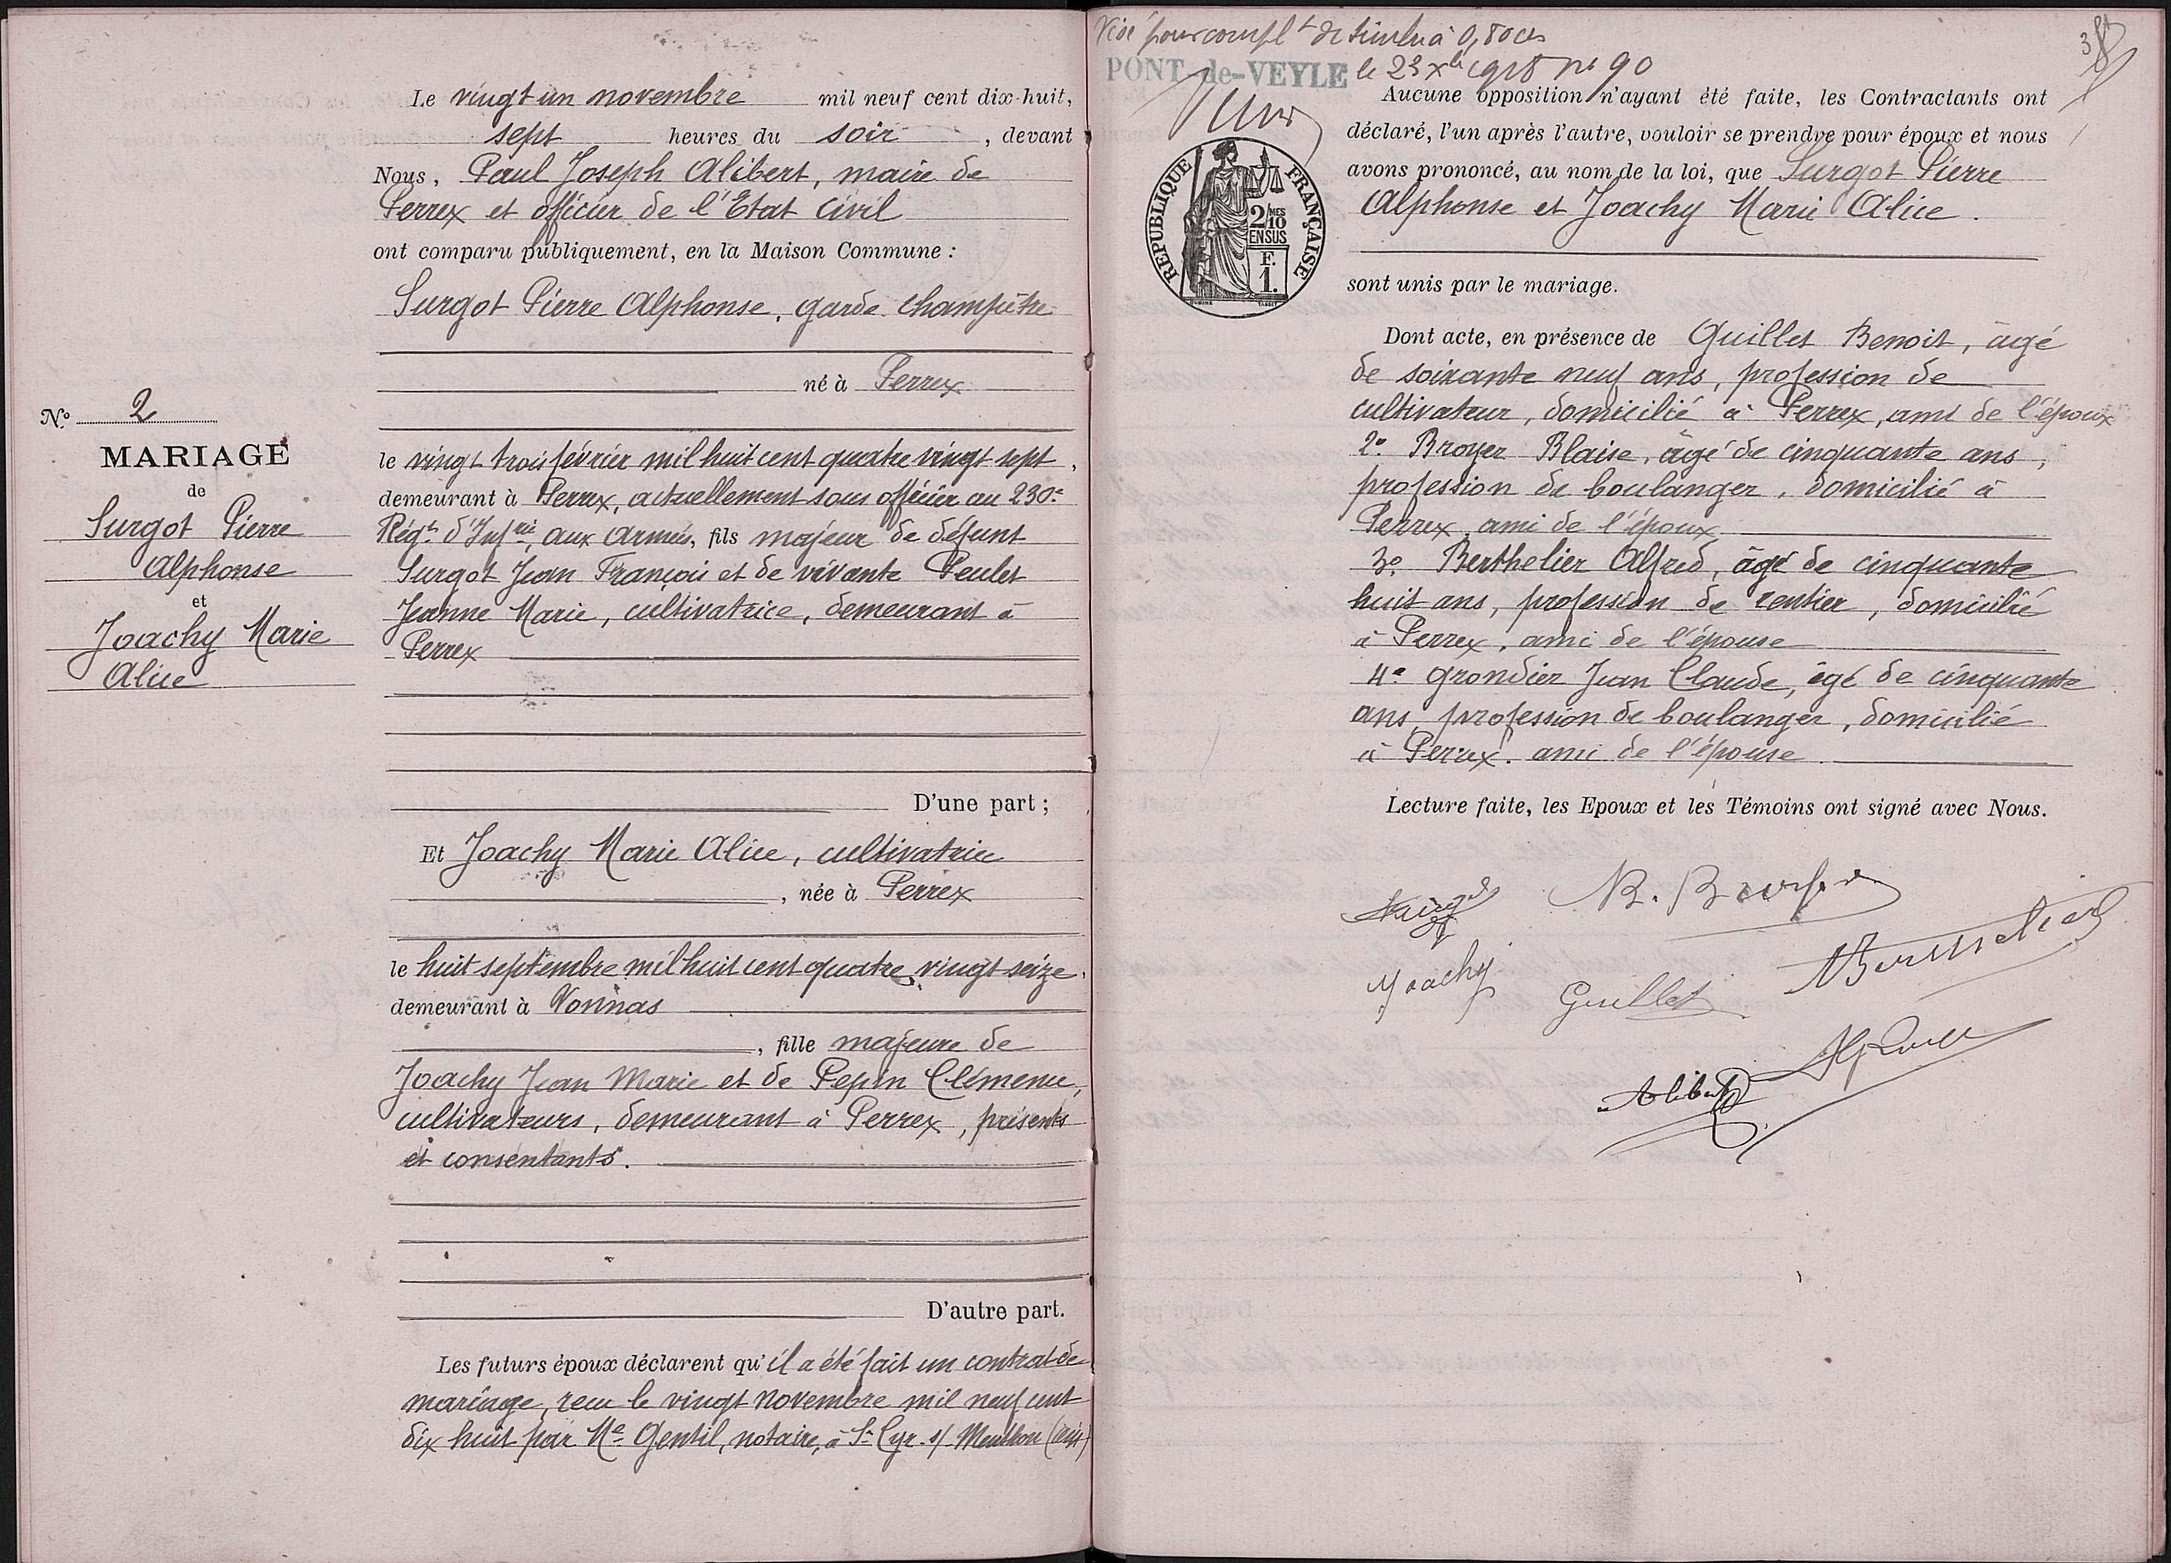 Le vingt un novembre mil neuf cent dix-huit,
sept heures du soir, devant
Nous, Paul Joseph Alibert, maire de
Perrex et officier de l'Etat civil
ont comparu publiquement, en la Maison Commune :
Surgot Pierre Alphonse, garde champêtre
né à Perrex
le vingt trois février mil huit cent quatre vingt sept,
demeurant à Perrex, actuellement sous officier au 230e
Régt d'Infrie, aux armées, fils majeur de défunt
Surgot Jean François et de vivante Peulet
Jeanne Marie, cultivatrice, demeurant à
Perrex
D'une part ;
Et Joachy Marie Alice, cultivatrice
, née à Perrex
le huit septembre mil huit cent quatre vingt seize,
demeurant à Vonnas
, fille majeure de
Joachy Jean Marie et de Pepin Clémence,
cultivateurs, demeurant à Perrex, présents
et consentants.
D'autre part.
Les futurs époux déclarent qu'il a été fait un contrat de
mariage, reçu le vingt novembre mil neuf cent
dix huit par Me Gentil, notaire, à St Cyr s/ Menthon (ain)
No 2
MARIAGE
de
Surgot Pierre
Alphonse
et
Joachy Marie
Alice
Visé pour complt de timbre à 0,80 ces
PONT-de-VEYLE le 23 Xbre 1918 no 90
REPUBLIQUE FRANÇAISE
2/10MES
EN SUS
F.
1.
Aucune opposition n'ayant été faite, les Contractants ont
déclaré, l'un après l'autre, vouloir se prendre pour époux et nous
avons prononcé, au nom de la loi, que Surgot Pierre
Alphonse et Joachy Marie Alice.
sont unis par le mariage.
Dont acte, en présence de Guillet Benoit, âgé
de soixante neuf ans, profession de
cultivateur, domicilié à Perrex, ami de l'époux
2o Broyer Blaise, âgé de cinquante ans,
profession de boulanger, domicilié à
Perrex, ami de l'époux
3o Berthelier Alfred, âgé de cinquante
huit ans, profession de rentier, domicilié
à Perrex, ami de l'épouse
4e Grondier Jean Claude, âgé de cinquante
ans profession de boulanger, domicilié
à Perrex. ami de l'épouse.
Lecture faite, les Epoux et les Témoins ont signé avec Nous.
B. Broyer
Joachy
Guillet
Berthelier
Alibert